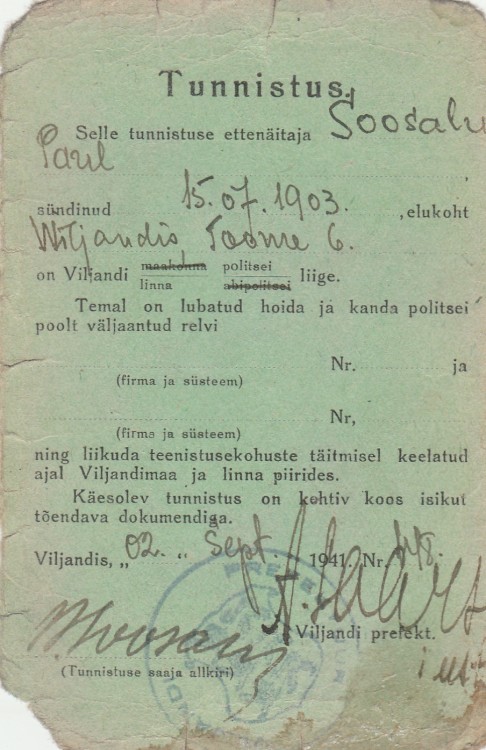 Tunnistus.
Selle tunnistuse ettenäitaja Soosalu
Paul
sündinud 15.07.1903. , elukoht
Wiljandis, Toome 6.
on Viljandi maakonna politsei
linna abipolitsei liige.
Temal on lubatud hoida ja kanda politsei
poolt väljaantud relvi
Nr. ja
(firma ja süsteem)
Nr,
(firma ja süsteem)
ning liikuda teenistusekohuste täitmisel keelatud
ajal Viljandimaa ja linna piirides.
Käesolev tunnistus on kehtiv koos isikut
tõendava dokumendiga.
Viljandis, „02. “ Sept 1941. Nr. 148.
Viljandi prefekt.
(Tunnistuse saaja allkiri)